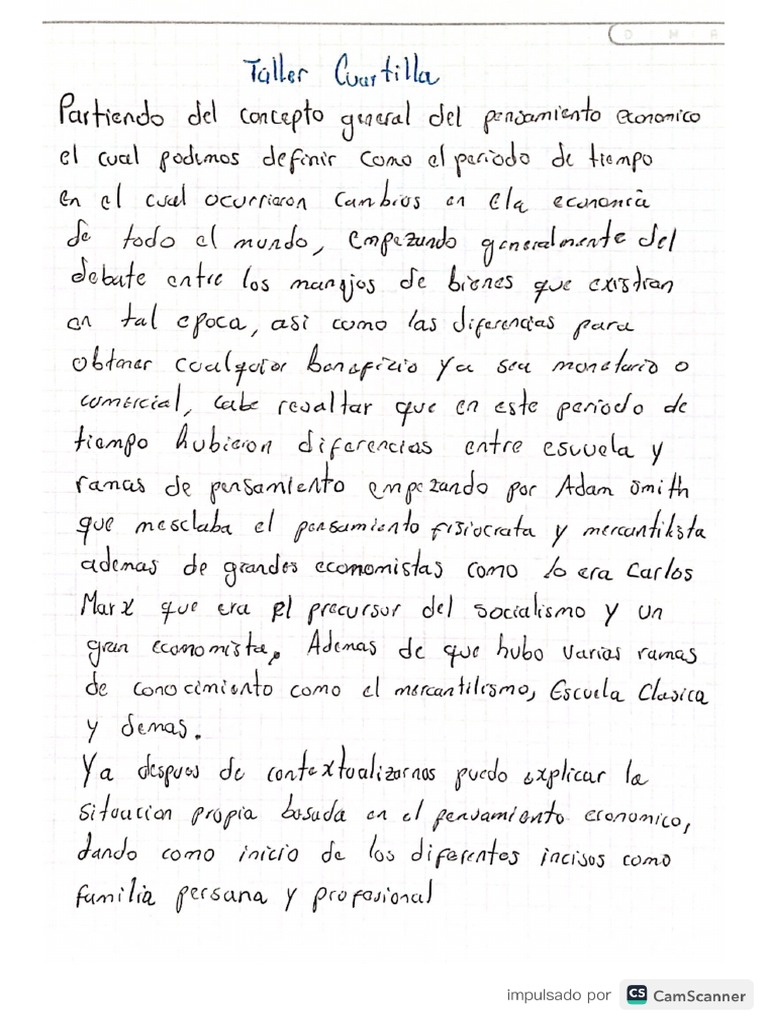 D M A
Taller Cuartilla
Partiendo del concepto general del pensamiento economico
el cual podemos definir como el periodo de tiempo
en el cual ocurrieron cambios en ela economia
de todo el mundo, empezando generalmente del
debate entre los manejos de bienes que existian
en tal epoca, asi como las diferencias para
obtener cualquier beneficio ya sea monetario o
comercial, cabe resaltar que en este periodo de
tiempo hubieron diferencias entre escuela y
ramas de pensamiento empezando por Adam Smith
que mesclaba el pensamiento fisiocrata y mercantilista
ademas de grandes economistas como lo era Carlos
Marx que era el precursor del socialismo y un
gran economista. Ademas de que hubo varias ramas
de conocimiento como el mercantilismo, Escuela Clasica
y demas.
Ya despues de contextualizarnos puedo explicar la
situacion propia basada en el pensamiento economico,
dando como inicio de los diferentes incisos como
familia persana y profesional
impulsado por CS CamScanner